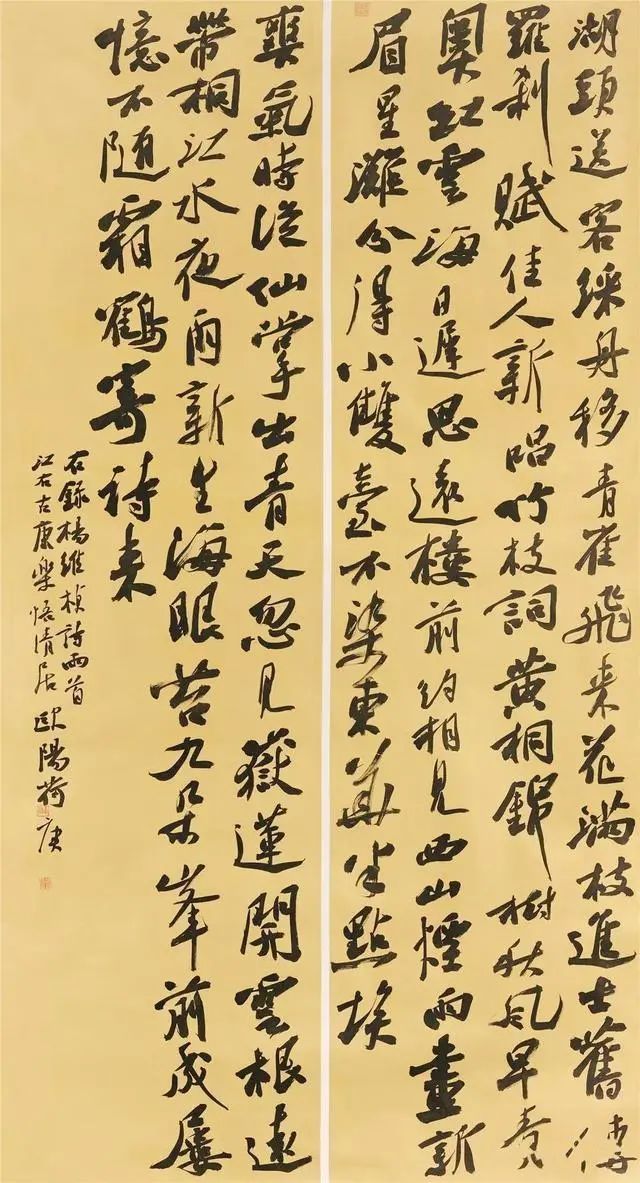 湖頭送客綵舟移青雀飛來花滿枝進士舊傳
羅刹賦佳人新唱竹枝詞黃桐錦樹秋風早
奧紅雲海日遲思遠樓前約相見西山煙雨畫新
眉星灘分得小雙臺不染東華半點埃
爽氣時從仙掌出青天忽見嶽蓮開雲根遠
帶桐江水夜雨新生海眼苔九朵峯前成屢
憶不隨霜鶴寄詩來
右錄楊維楨詩兩首
江右古康樂悟清居歐陽荷庚